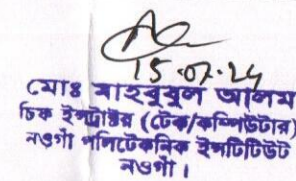 15.07.24
মোঃ মাহবুবুল আলম
চিফ ইন্সট্রাক্টর (টেক/কম্পিউটার)
নওগাঁ পলিটেকনিক ইন্সটিটিউট
নওগাঁ।